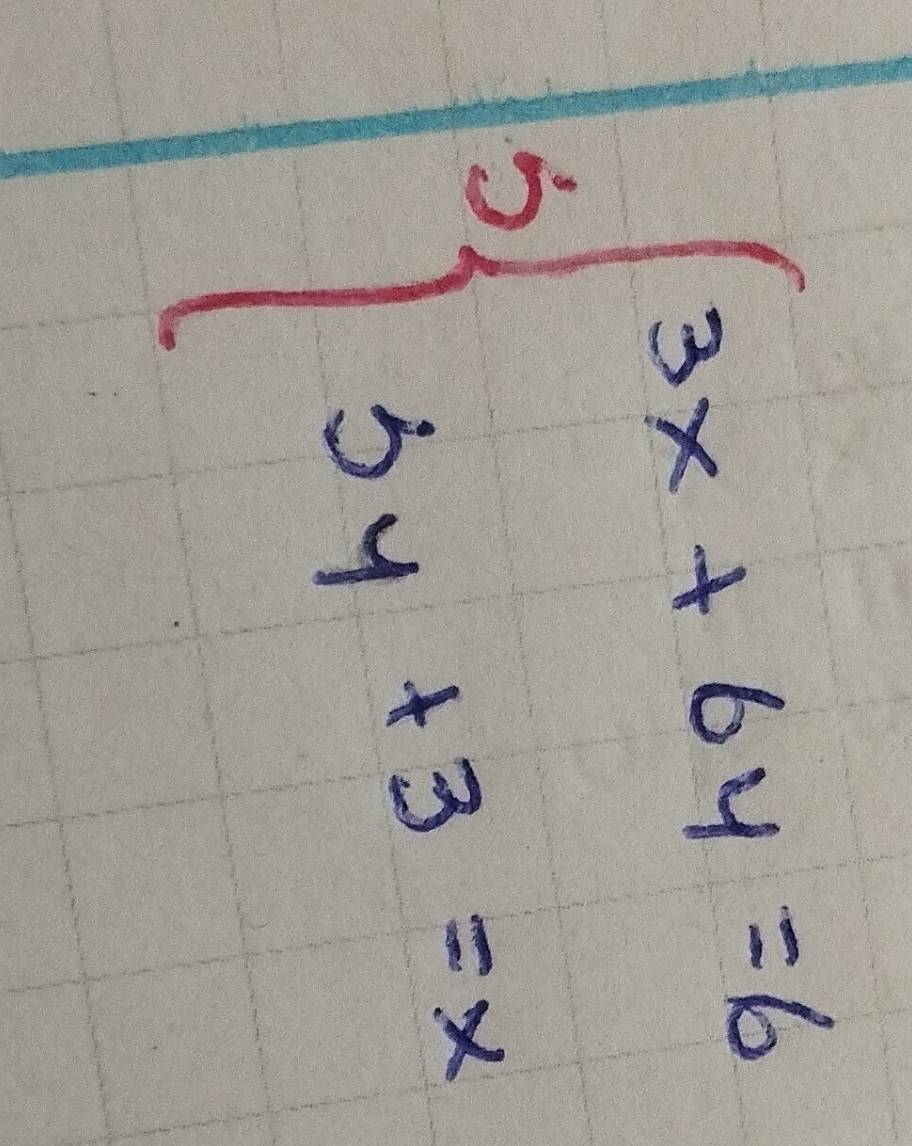 5
3x + 6y = 6
5y + 3 = x